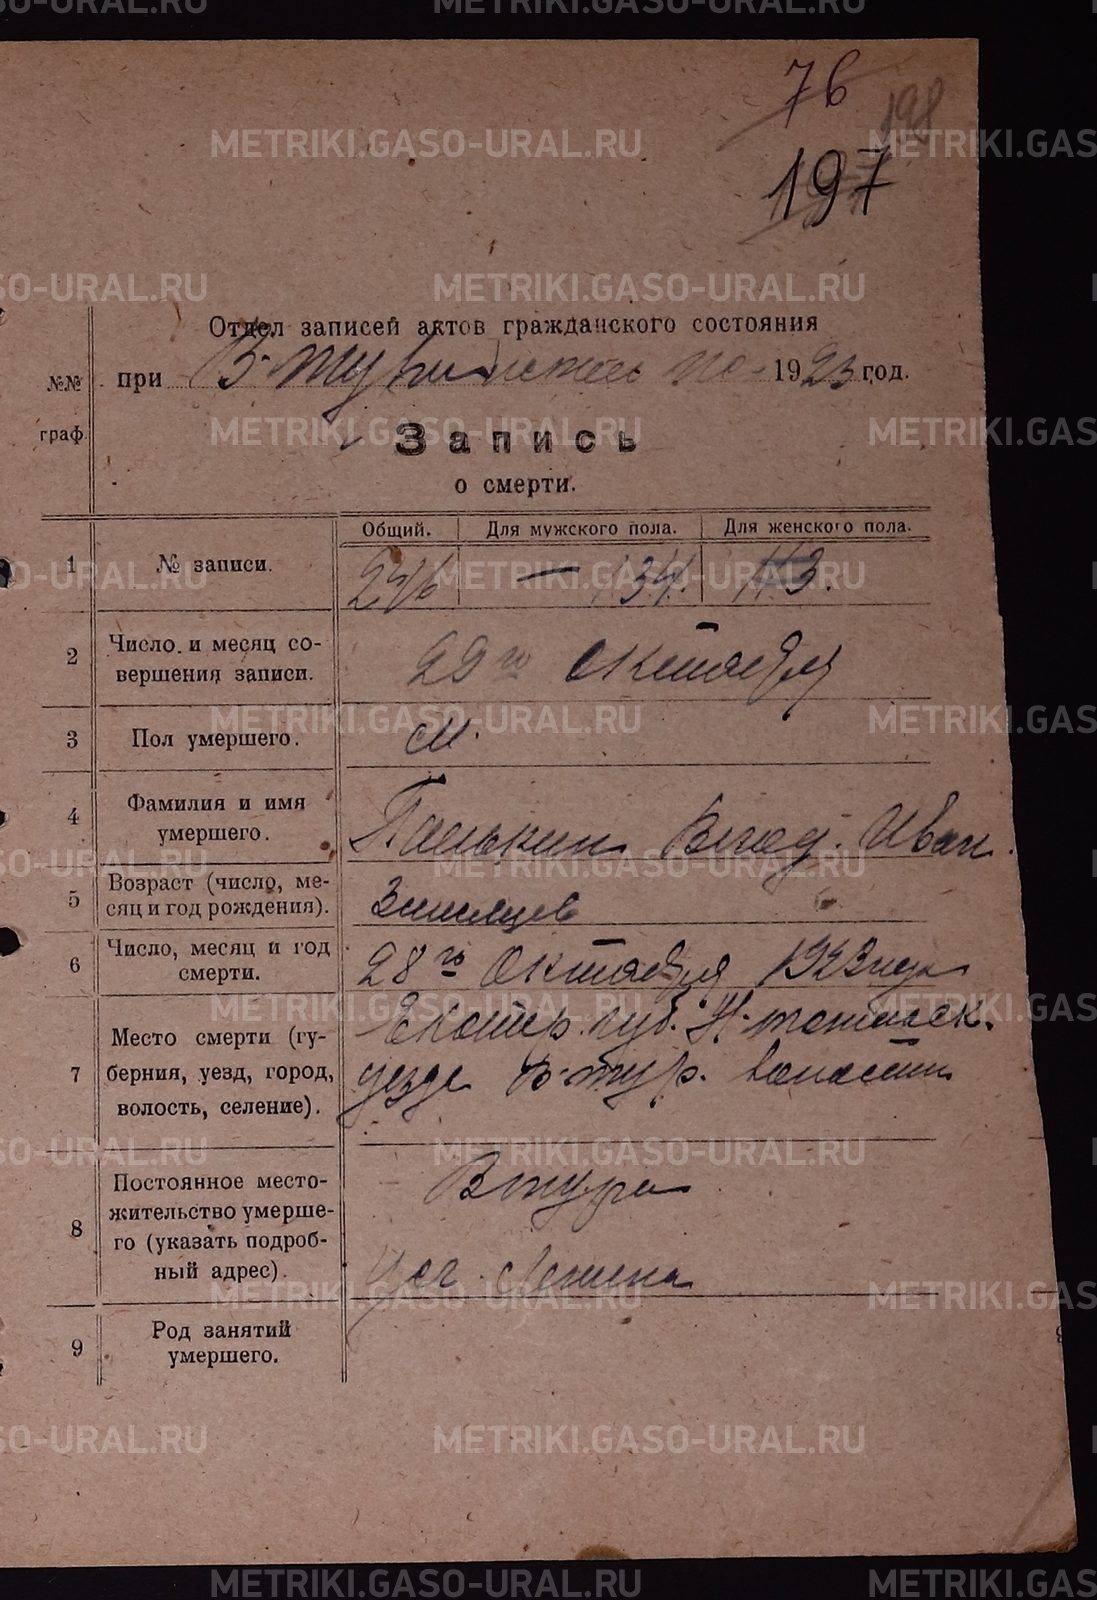 76
198
197
Отдел записей актов гражданского состояния
№№ граф.
при В-Туринском 1923 год.
Запись
о смерти.
Общий. Для мужского пола. Для женского пола.
1 № записи. 246 — 134. 113.
2 Число и месяц со-
вершения записи. 29го Октября
3 Пол умершего. м.
4 Фамилия и имя
умершего. Палькин Влад. Иван.
5 Возраст (число, ме-
сяц и год рождения). 3 месяцев
6 Число, месяц и год
смерти. 28го Октября 1923 года
7 Место смерти (гу-
берния, уезд, город,
волость, селение).
Екатер. губ. Н-тагильск.
уезде В-тур. волости
8 Постоянное место-
жительство умерше-
го (указать подроб-
ный адрес).
В тура
Ленина
9 Род занятий
умершего.
METRIKI.GASO-URAL.RU